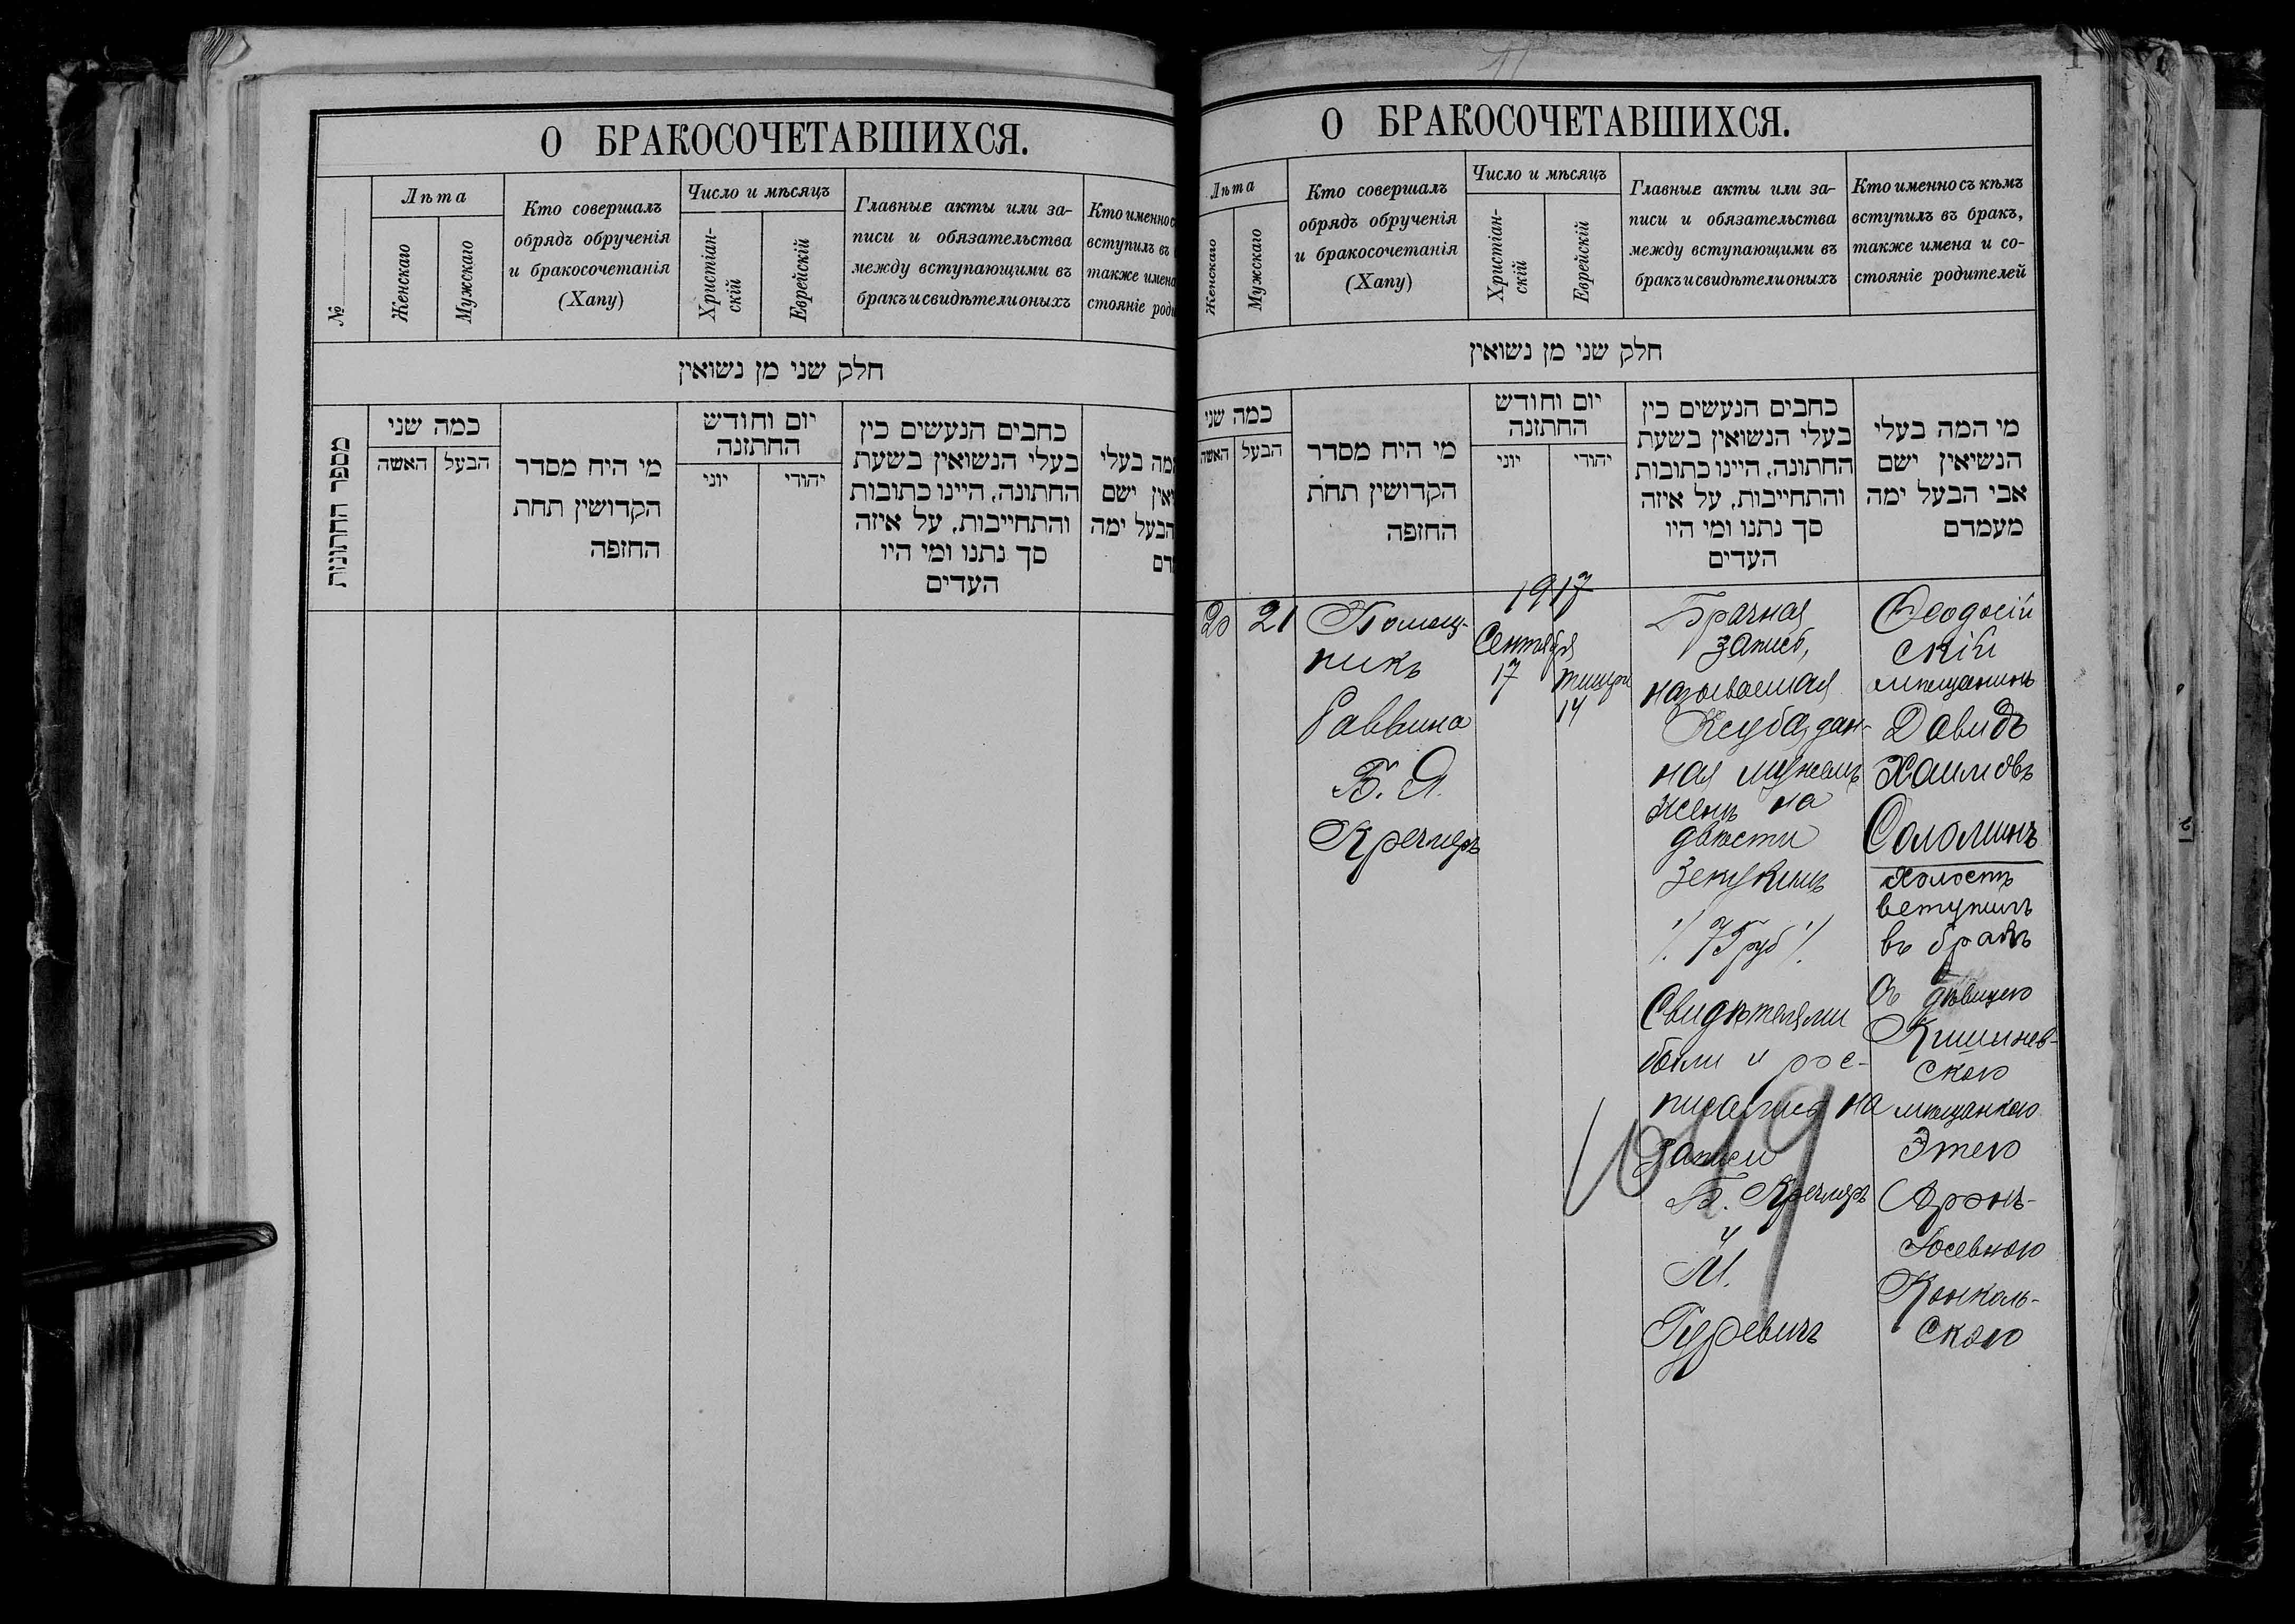 О БРАКОСОЧЕТАВШИХСЯ.
№
Лѣта
Женскаго
Мужскаго
Кто совершалъ
обрядъ обрученія
и бракосочетанія
(Хапу)
Число и мѣсяцъ
Христіан-
скій
Еврейскій
Главныя акты или за-
писи и обязательства
между вступающими въ
бракъ и свидѣтели оныхъ
Кто именно с
вступилъ въ
также имена
стояніе роди
חלק שני מן נשואין
מספר החתונות
כמה שני
האשה
הבעל
מי היח מסדר
הקדושין תחת
החזפה
יום וחודש
החתזנה
יוני
יהודי
כחבים הנעשים כין
בעלי הנשואין בשעת
החתונה, היינו כתובות
והתחייבות, על איזה
סך נתנו ומי היו
העדים
מה בעלי
אין ישם
הבעל ימה
דם
1
О БРАКОСОЧЕТАВШИХСЯ.
Лѣта
Женскаго
Мужскаго
Кто совершалъ
обрядъ обрученія
и бракосочетанія
(Хапу)
Число и мѣсяцъ
Христіан-
скій
Еврейскій
Главныя акты или за-
писи и обязательства
между вступающими въ
бракъ и свидѣтели оныхъ
Кто именно съ кѣмъ
вступилъ въ бракъ,
также имена и со-
стояніе родителей
חלק שני מן נשואין
כמה שני
האשה
הבעל
מי היח מסדר
הקדושין תחת
החזפה
יום וחודש
החתזנה
יוני
יהודי
כחבים הנעשים כין
בעלי הנשואין בשעת
החתונה, היינו כתובות
והתחייבות, על איזה
סך נתנו ומי היו
העדים
מי המה בעלי
הנשיאין ישם
אבי הבעל ימה
מעמדם
20
21
Помощ-
никъ
Раввина
Б. Я.
Кречмеръ
1917
Сентября
17
тишри
14
Брачная
запись,
называемая
Ксуба, дан-
ная мужемъ
женѣ на
двѣсти
Зекукимъ
/. 75 руб /.
Свидѣтелями
были и рос-
писались на
записи
Б. Кречмеръ
и
М.
Гуревичъ
Ѳеодосій
скій
мѣщанинъ
Давидъ
Хаимовъ
Соломинъ
холостъ
вступилъ
въ бракъ
съ дѣвицею
Кишинев-
скою
мѣщанкою
Этею
Аронъ-
Іосевною
Конколь-
скою